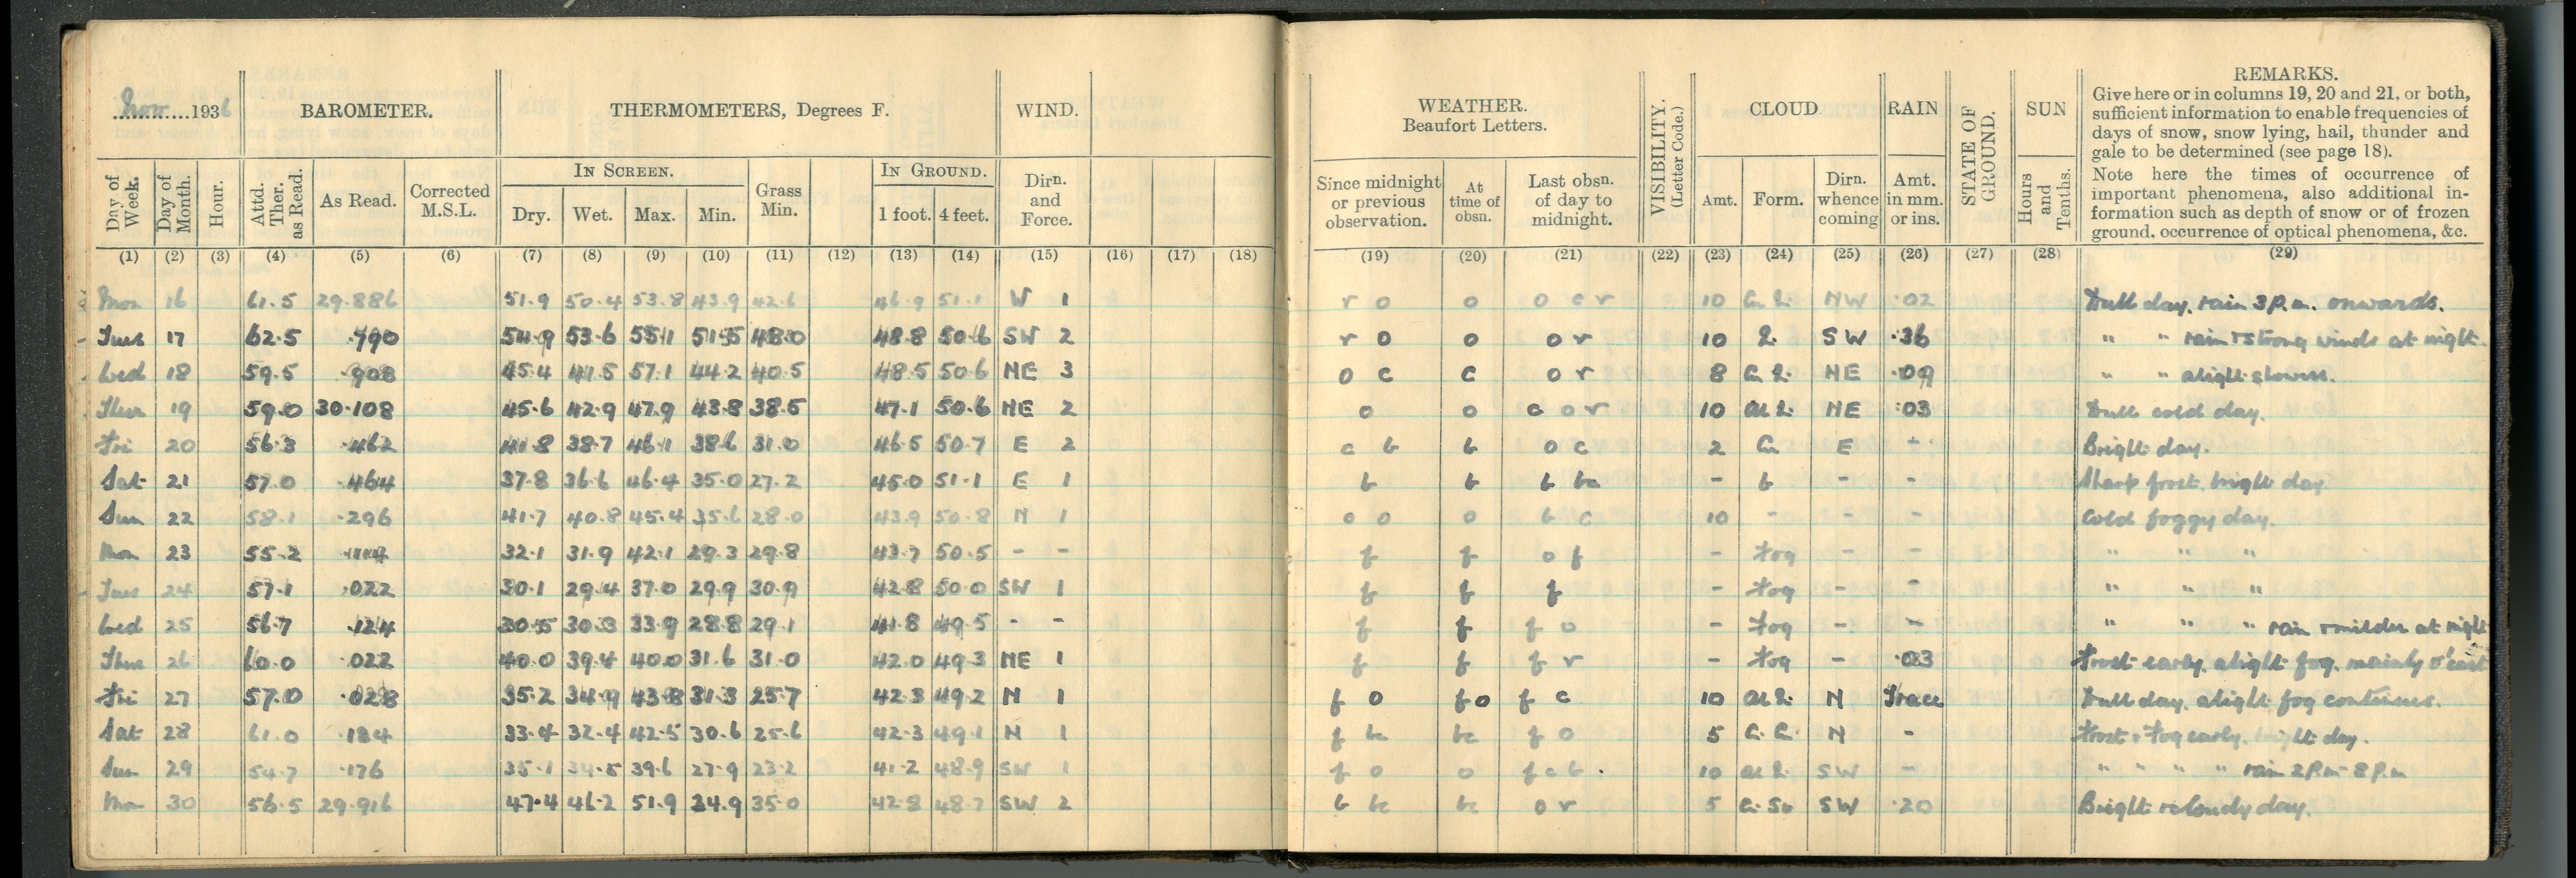 Nov. 1936 BAROMETER. THERMOMETERS, Degrees F. WIND.
IN SCREEN. IN GROUND.
Day of Week. Day of Month. Hour. Attd. Ther. as Read. As Read. Corrected M.S.L. Dry. Wet. Max. Min. Grass Min. 1 foot. 4 feet. Dirn. and Force.
(1) (2) (3) (4) (5) (6) (7) (8) (9) (10) (11) (12) (13) (14) (15) (16) (17) (18)
Mon 16 61.5 29.886 51.9 50.4 53.8 43.9 42.6 46.9 51.1 W 1
Tues 17 62.5 .790 54.9 53.6 55.1 51.5 48.0 48.8 50.6 SW 2
Wed 18 59.5 .908 45.4 41.5 57.1 44.2 40.5 48.5 50.6 NE 3
Thur 19 59.0 30.108 45.6 42.9 47.9 43.8 38.5 47.1 50.6 NE 2
Fri 20 56.3 .462 41.8 38.7 46.1 38.6 31.0 46.5 50.7 E 2
Sat 21 57.0 .464 37.8 36.6 46.4 35.0 27.2 45.0 51.1 E 1
Sun 22 58.1 .296 41.7 40.8 45.4 35.6 28.0 43.9 50.8 N 1
Mon 23 55.2 32.1 31.9 42.1 29.3 29.8 43.7 50.5 - -
Tues 24 57.1 .022 30.1 29.4 37.0 29.9 30.9 42.8 50.0 SW 1
Wed 25 56.7 .124 30.5 30.3 33.9 28.8 29.1 41.8 49.5 - -
Thur 26 60.0 .022 40.0 39.4 40.0 31.6 31.0 42.0 49.3 NE 1
Fri 27 57.0 .028 35.2 34.9 43.8 31.3 25.7 42.3 49.2 N 1
Sat 28 61.0 .184 33.4 32.4 42.5 30.6 25.6 42.3 49.1 N 1
Sun 29 54.7 .176 35.1 34.5 39.6 27.9 23.2 41.2 48.9 SW 1
Mon 30 56.5 29.916 47.4 46.2 51.9 34.9 35.0 42.8 48.7 SW 2
WEATHER. Beaufort Letters. VISIBILITY. (Letter Code.) CLOUD RAIN STATE OF GROUND. SUN REMARKS.
Give here or in columns 19, 20 and 21, or both,
sufficient information to enable frequencies of
days of snow, snow lying, hail, thunder and
gale to be determined (see page 18).
Note here the times of occurrence of
important phenomena, also additional in-
formation such as depth of snow or of frozen
ground, occurrence of optical phenomena, &c.
Since midnight or previous observation. At time of obsn. Last obsn. of day to midnight. Amt. Form. Dirn. whence coming Amt. in mm. or ins. Hours and Tenths.
(19) (20) (21) (22) (23) (24) (25) (26) (27) (28) (29)
r o o o c r 10 NW .02 Dull day, rain 3 p.m. onwards.
r o o o r 10 SW .36 " " rain + strong winds at night.
o c c o r 8 NE .09 " " slight showers.
o o c o r 10 NE .03 Dull cold day.
c b b o c 2 Cu E - Bright day.
b b b bc - b - - Sharp frost, bright day
c o o b c 10 - - - Cold foggy day.
f f o f - Fog - - " " "
f f f - Fog - - " " "
f f f o - Fog - - " " " rain + milder at night
f f f r - Fog - .03 Frost early, slight fog, mainly o'cast
f o f o f c 10 N Trace Dull day, slight fog continues.
f bc bc f o 5 N - Frost + Fog early, bright day.
f o o f c b . 10 SW - " " " " rain 2 p.m - 8 p.m
b bc bc o r 5 SW .20 Bright + cloudy day.